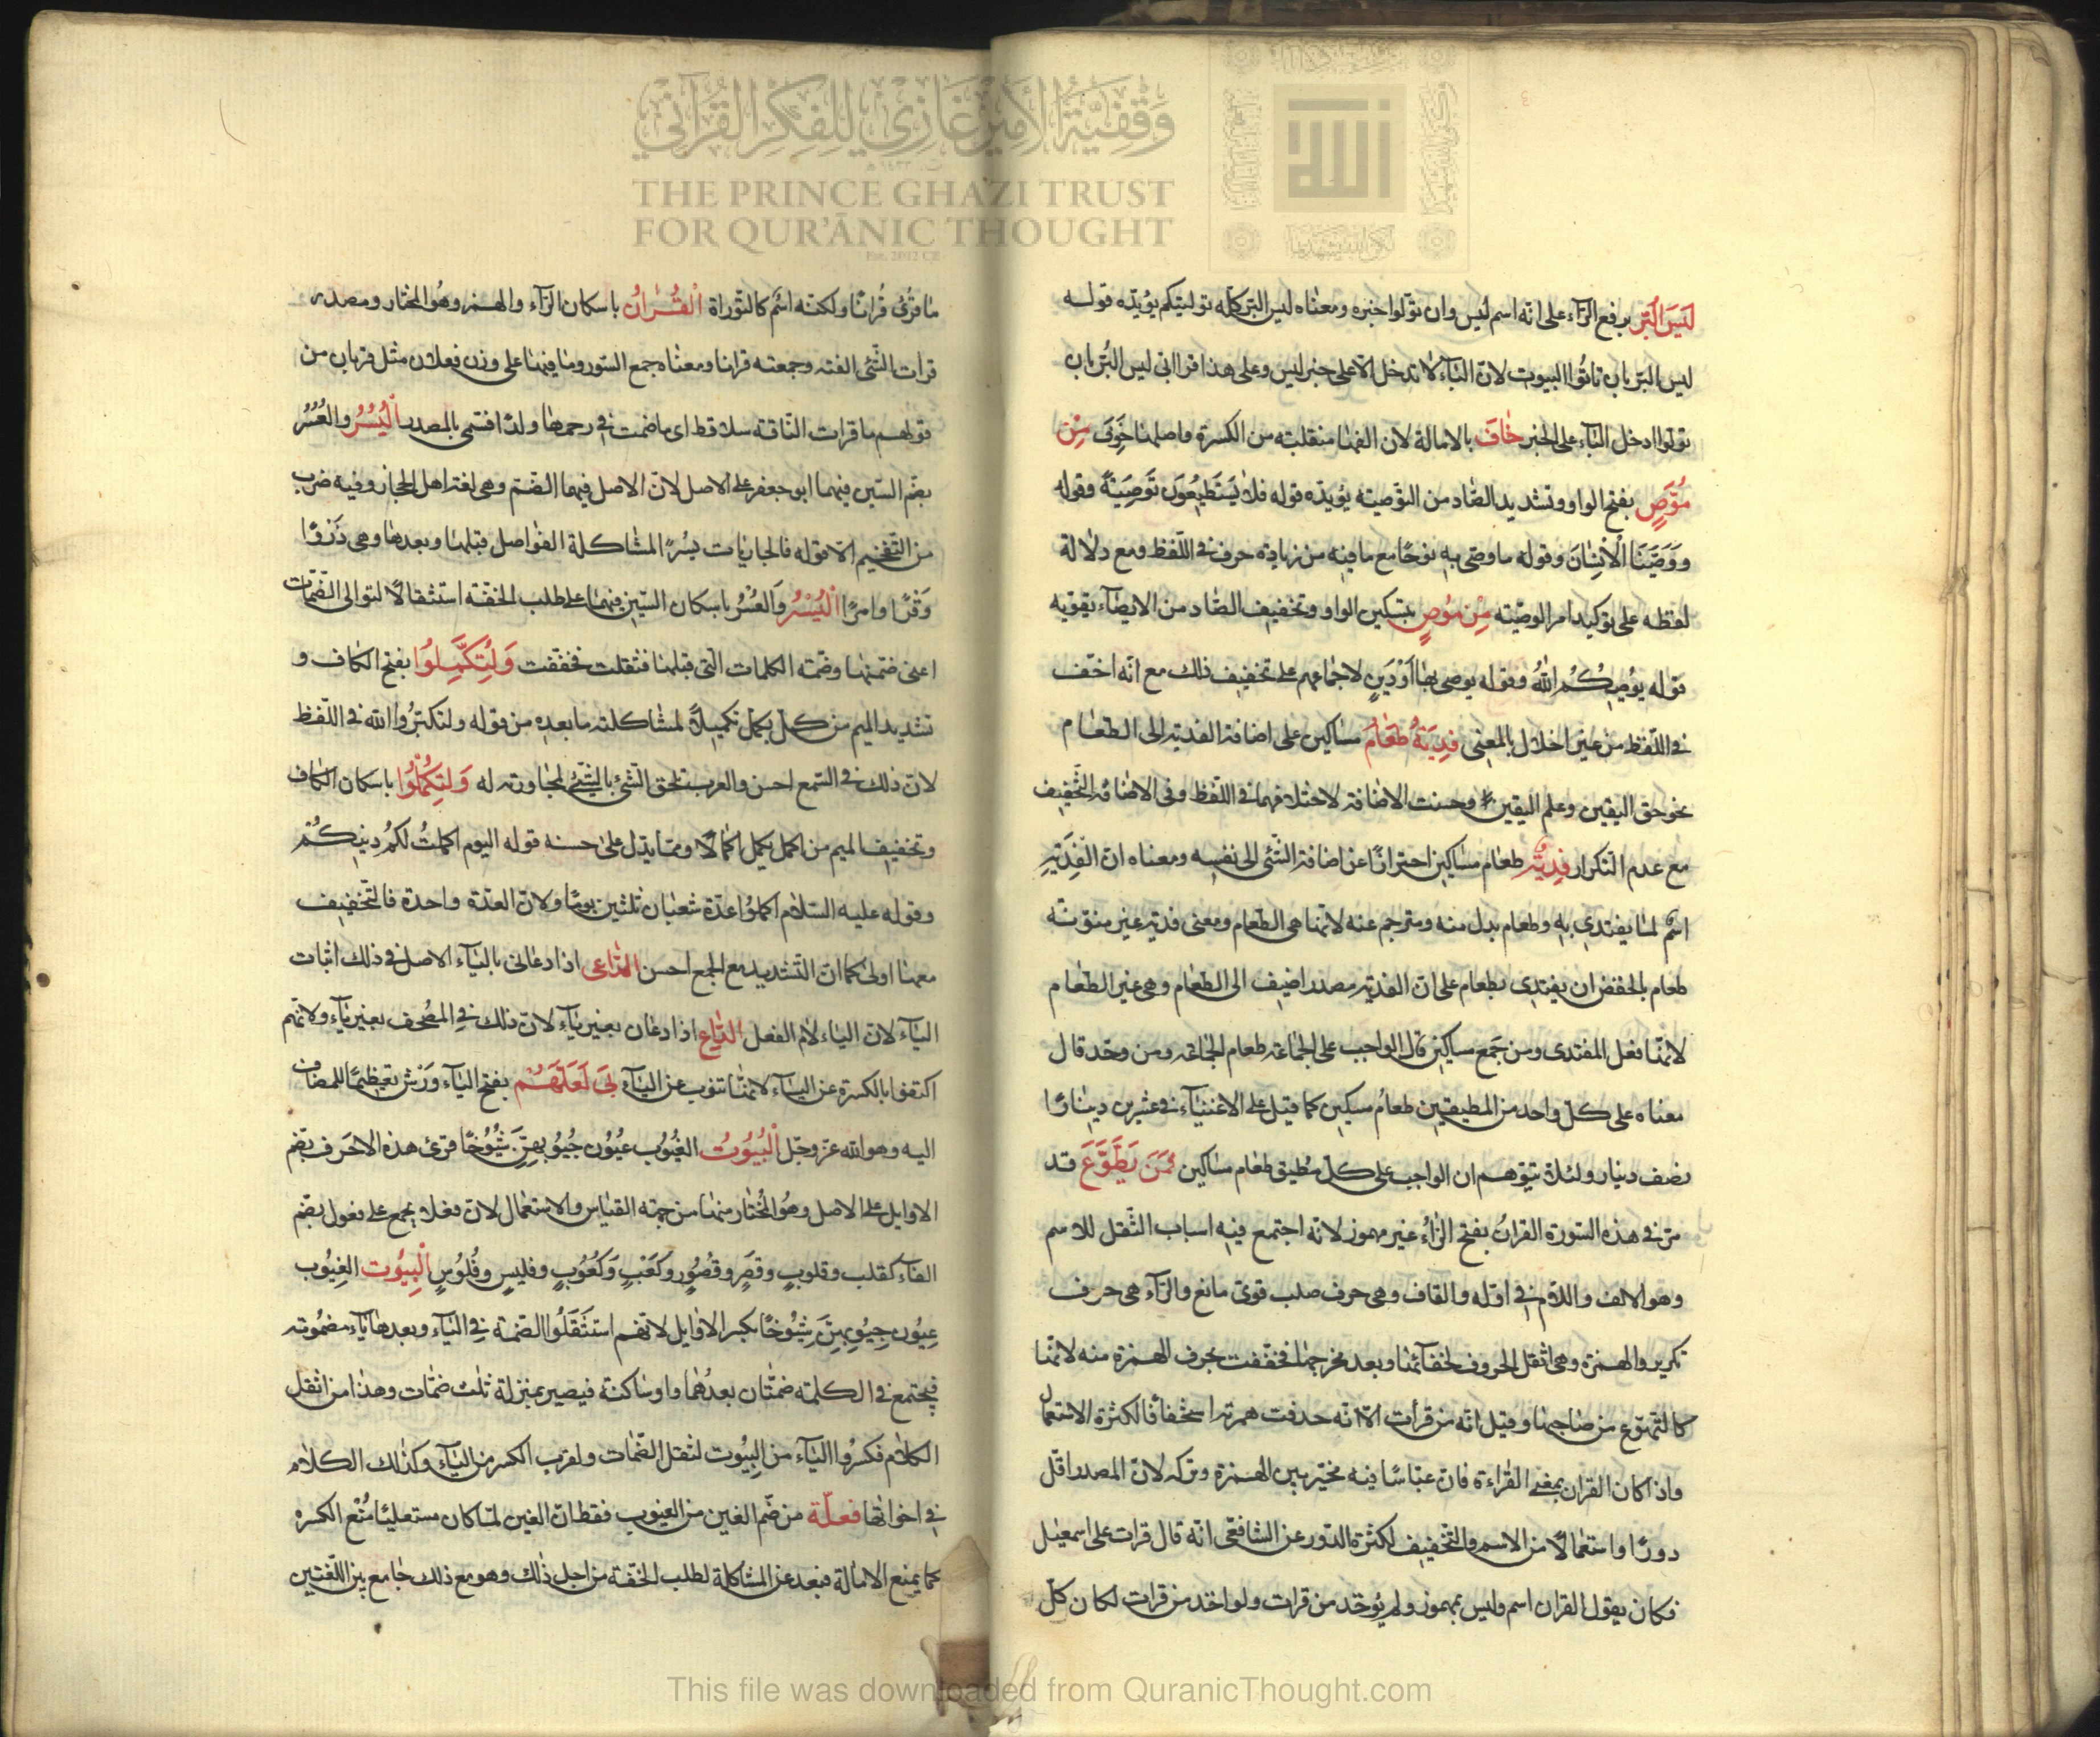 ليس البر برفع الرآء على انه اسم ليس وان تولوا خبره ومعناه ليس البر كله توليتكم يؤيده قوله
ليس البر بان تاتوا البيوت لان البآء لا تدخل الا على خبر ليس وعلى هذا قرا ابى ليس البر بان
تولوا ادخل البآء على الخبر خاف بالامالة لان الفها منقلبة من الكسرة واصلها خوف من
موص بفتح الواو وتشديد الصاد من التوصية يؤيده قوله فلا يستطيعون توصية وقوله
ووصينا الانسان وقوله ما وصى به نوحا مع ما فيه من زيادة حرف فى اللفظ ومع دلالة
لفظه على توكيد امر الوصية من موص بتسكين الواو وتخفيف الصاد من الايصآء تقويه
قوله يوصيكم الله وقوله يوصى بها او دين لاجماعهم على تخفيف ذلك مع انه اخف
فى اللفظ من غير اخلال بالمعنى فدية طعام مساكين على اضافة الفدية الى الطعام
نحو حق اليقين وعلم اليقين وحسنت الاضافة لاختلافهما فى اللفظ وفى الاضافة التخفيف
مع عدم التكرار فدية طعام مساكين احترازا عن اضافة الشئ الى نفسه ومعناه ان الفدية
اسم لما يفتدى به وطعام بدل منه ومترجم عنه لانها هى الطعام ومعنى فدية غير منونة
طعام بالخفض ان يفتدى بطعام على ان الفدية مصدر اضيف الى الطعام وهى غير الطعام
لانها فعل المفتدى ومن جمع مساكين قال الواجب على الجماعة طعام الجماعة ومن وحد قال
معناه على كل واحد من المطيقين طعام مسكين كما قيل على الاغنيآء فى عشرين دينارا
نصف دينار ولئلا يتوهم ان الواجب على كل مطيق طعام مساكين فمن يطوع قد
مر فى هذه السورة القران بفتح الرآء غير مهموز لانه اجتمع فيه اسباب الثقل للاسم
وهو الالف واللام فى اوله والقاف وهى حرف صلب قوى مانع والرآء هى حرف
تكرير والهمزة وهى اثقل الحروف لخفآئها وبعد مخرجها فخففت بحرف الهمزة منه لانها
كالتهوع من صاحبها وقيل انه من قرات الا انه حذفت همزته استخفافا لكثرة الاستعمال
واذا كان القران بمعنى القراءة فان عباسا فيه مخير بين الهمزة وتركه لان المصدر اقل
دورا واستعمالا من الاسم والتخفيف لكثرة الدور عن الشافعى انه قال قرات على اسمعيل
فكان يقول القران اسم وليس بمهموز ولم يوخد من قرات ولو اخد من قرات لكان كل
ما قرئ قرانا ولكنه اسم كالتوراة القران باسكان الرآء والهمز وهو المختار ومصدر
قرات الشئ الفته وجمعته قرانا ومعناه جمع السور وما فيها على وزن فعلان مثل قربان من
قولهم ما قرات الناقة سلا قط اى ما ضمت فى رحمها ولدا فتسمى بالمصدر اليسر والعسر
بضم السين فيهما ابو جعفر على الاصل لان الاصل فيهما الضم وهى لغة اهل الحجاز وفيه ضرب
من التفخيم الا قوله فالجاريات يسرا لمشاكلة الفواصل قبلها وبعدها وهى ذروا
وقرا وامرا اليسر والعسر باسكان السين فيهما على طلب الخفة استثقالا لتوالى الضمات
اعنى ضمتها وضمة الكلمات التى قبلها فثقلت فخففت ولتكملوا بفتح الكاف و
تشديد الميم من كمل يكمل تكميلا لمشاكلة ما بعده من قوله ولتكبروا الله فى اللفظ
لان ذلك فى السمع احسن والعرب تلحق الشئ بالشئ لمجاورته له ولتكملوا باسكان الكاف
وتخفيف الميم من اكمل يكمل اكمالا ومما يدل على حسنه قوله اليوم اكملت لكم دينكم
وقوله عليه السلام اكملوا عدة شعبان ثلثين يوما ولان العدة واحدة فالتخفيف
معها اولى كما ان التشديد مع الجمع احسن الداعى اذا دعانى باليآء الاصل فى ذلك اثبات
اليآء لان اليآء لام الفعل الداع اذا دعان بغير يآء لان ذلك فى المصحف بغير يآء ولانهم
اكتفوا بالكسرة عن اليآء لانها تنوب عن اليآء بى لعلهم بفتح اليآء ورش تعظيما للمضاف
اليه وهو الله عز وجل البيوت الغيوب عيون جيوبهن شيوخا قرئ هذه الاحرف بضم
الاوايل على الاصل وهو المختار منها من جهة القياس والاستعمال لان فعلا يجمع على فعول بضم
الفاء كقلب وقلوب وقصر وقصور وكعب وكعوب وفليس وفلوس البيوت الغيوب
عيون جيوبهن شيوخا بكسر الاوايل لانهم استثقلوا الضمة فى البآء وبعدها يآء مضمومة
فيجتمع فى الكلمة ضمتان بعدهما واو ساكنة فيصير بمنزلة ثلث ضمات وهذا من اثقل
الكلام فكسروا البآء من البيوت لثقل الضمات ولقرب الكسر من اليآء وكذلك الكلام
فى اخواتها فعلة من ضم الغين من الغيوب فقط ان الغين لما كان مستعليا منع الكسره
كما يمنع الامالة فبعد عن المشاكلة لطلب الخفة من اجل ذلك وهو مع ذلك جامع بين اللغتين
وقفية الأمير غازي للفكر القرآني
THE PRINCE GHAZI TRUST
FOR QUR'ĀNIC THOUGHT
Est. 2012 CE
This file was downloaded from QuranicThought.com